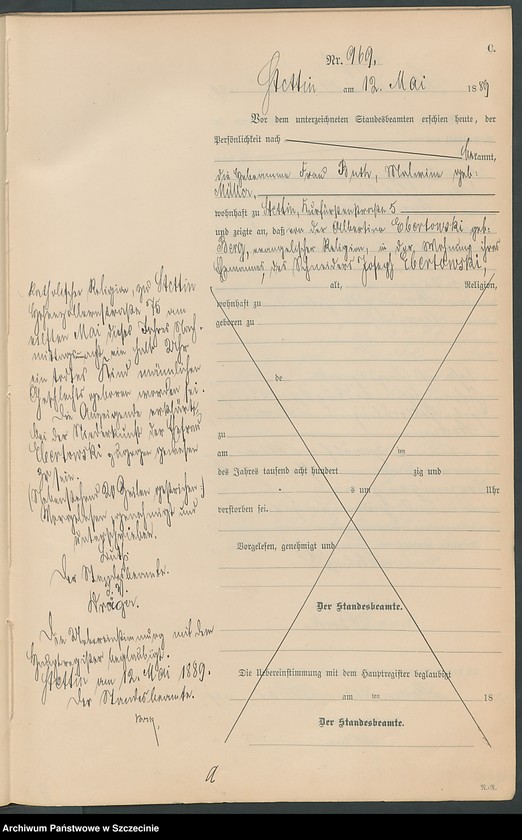 C.
Nr. 969.
Stettin am 12. Mai 1889
Vor dem unterzeichneten Standesbeamten erschien heute, der
Persönlichkeit nach
bekannt,
die Hebeamme Frau Ruth, Malwine geb:
Müller,
wohnhaft zu Stettin, Kurfürstenstraße 5
und zeigte an, daß von der Albertine Ebertowski geb:
Berg, evangelischer Religion, in der Wohnung ihres
Ehemannes, des Schneiders Joseph Ebertowski,
alt, Religion,
wohnhaft zu
geboren zu
de
zu
am ten
des Jahres tausend acht hundert zig und
s um Uhr
verstorben sei.
Vorgelesen, genehmigt und
Der Standesbeamte.
Die Uebereinstimmung mit dem Hauptregister beglaubigt
am ten 18
Der Standesbeamte.
katholischer Religion, zu Stettin
Hohenzollernstraße 75 am
elften Mai dieses Jahres Nach-
mittags acht ein halb Uhr
ein todtes Kind männlichen
Geschlechts geboren worden sei.
Die Anzeigende erklärt,
bei der Niederkunft der Ehefrau
Ebertowski zugegen gewesen
zu sein.
(Nebenstehend 20 Zeilen gestrichen.)
Vorgelesen, genehmigt und
unterschrieben.
Ruth
Der Standesbeamte.
Die Uebereinstimmung mit dem
Hauptregister beglaubigt.
Stettin am 12. Mai 1889.
Der Standesbeamte.
a
N.-R.
Archiwum Państwowe w Szczecinie